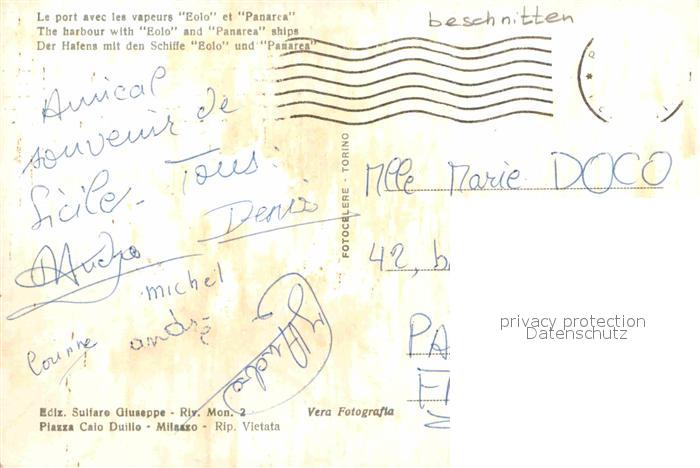 Le port avec les vapeurs "Eolo" et "Panarea"
The harbour with "Eolo" and "Panarea" ships
Der Hafens mit den Schiffe "Eolo" und "Panarea"
beschnitten
Amical
souvenir de
Sicile. Tous.
Denis
michel
andré
Corinne
FOTOCELERE - TORINO
Mlle Marie DOCO
42, b
PA
privacy protection
Datenschutz
Ediz. Sulfaro Giuseppe - Riv. Mon. 2
Piazza Caio Duilio - Milazzo - Rip. Vietata
Vera Fotografia